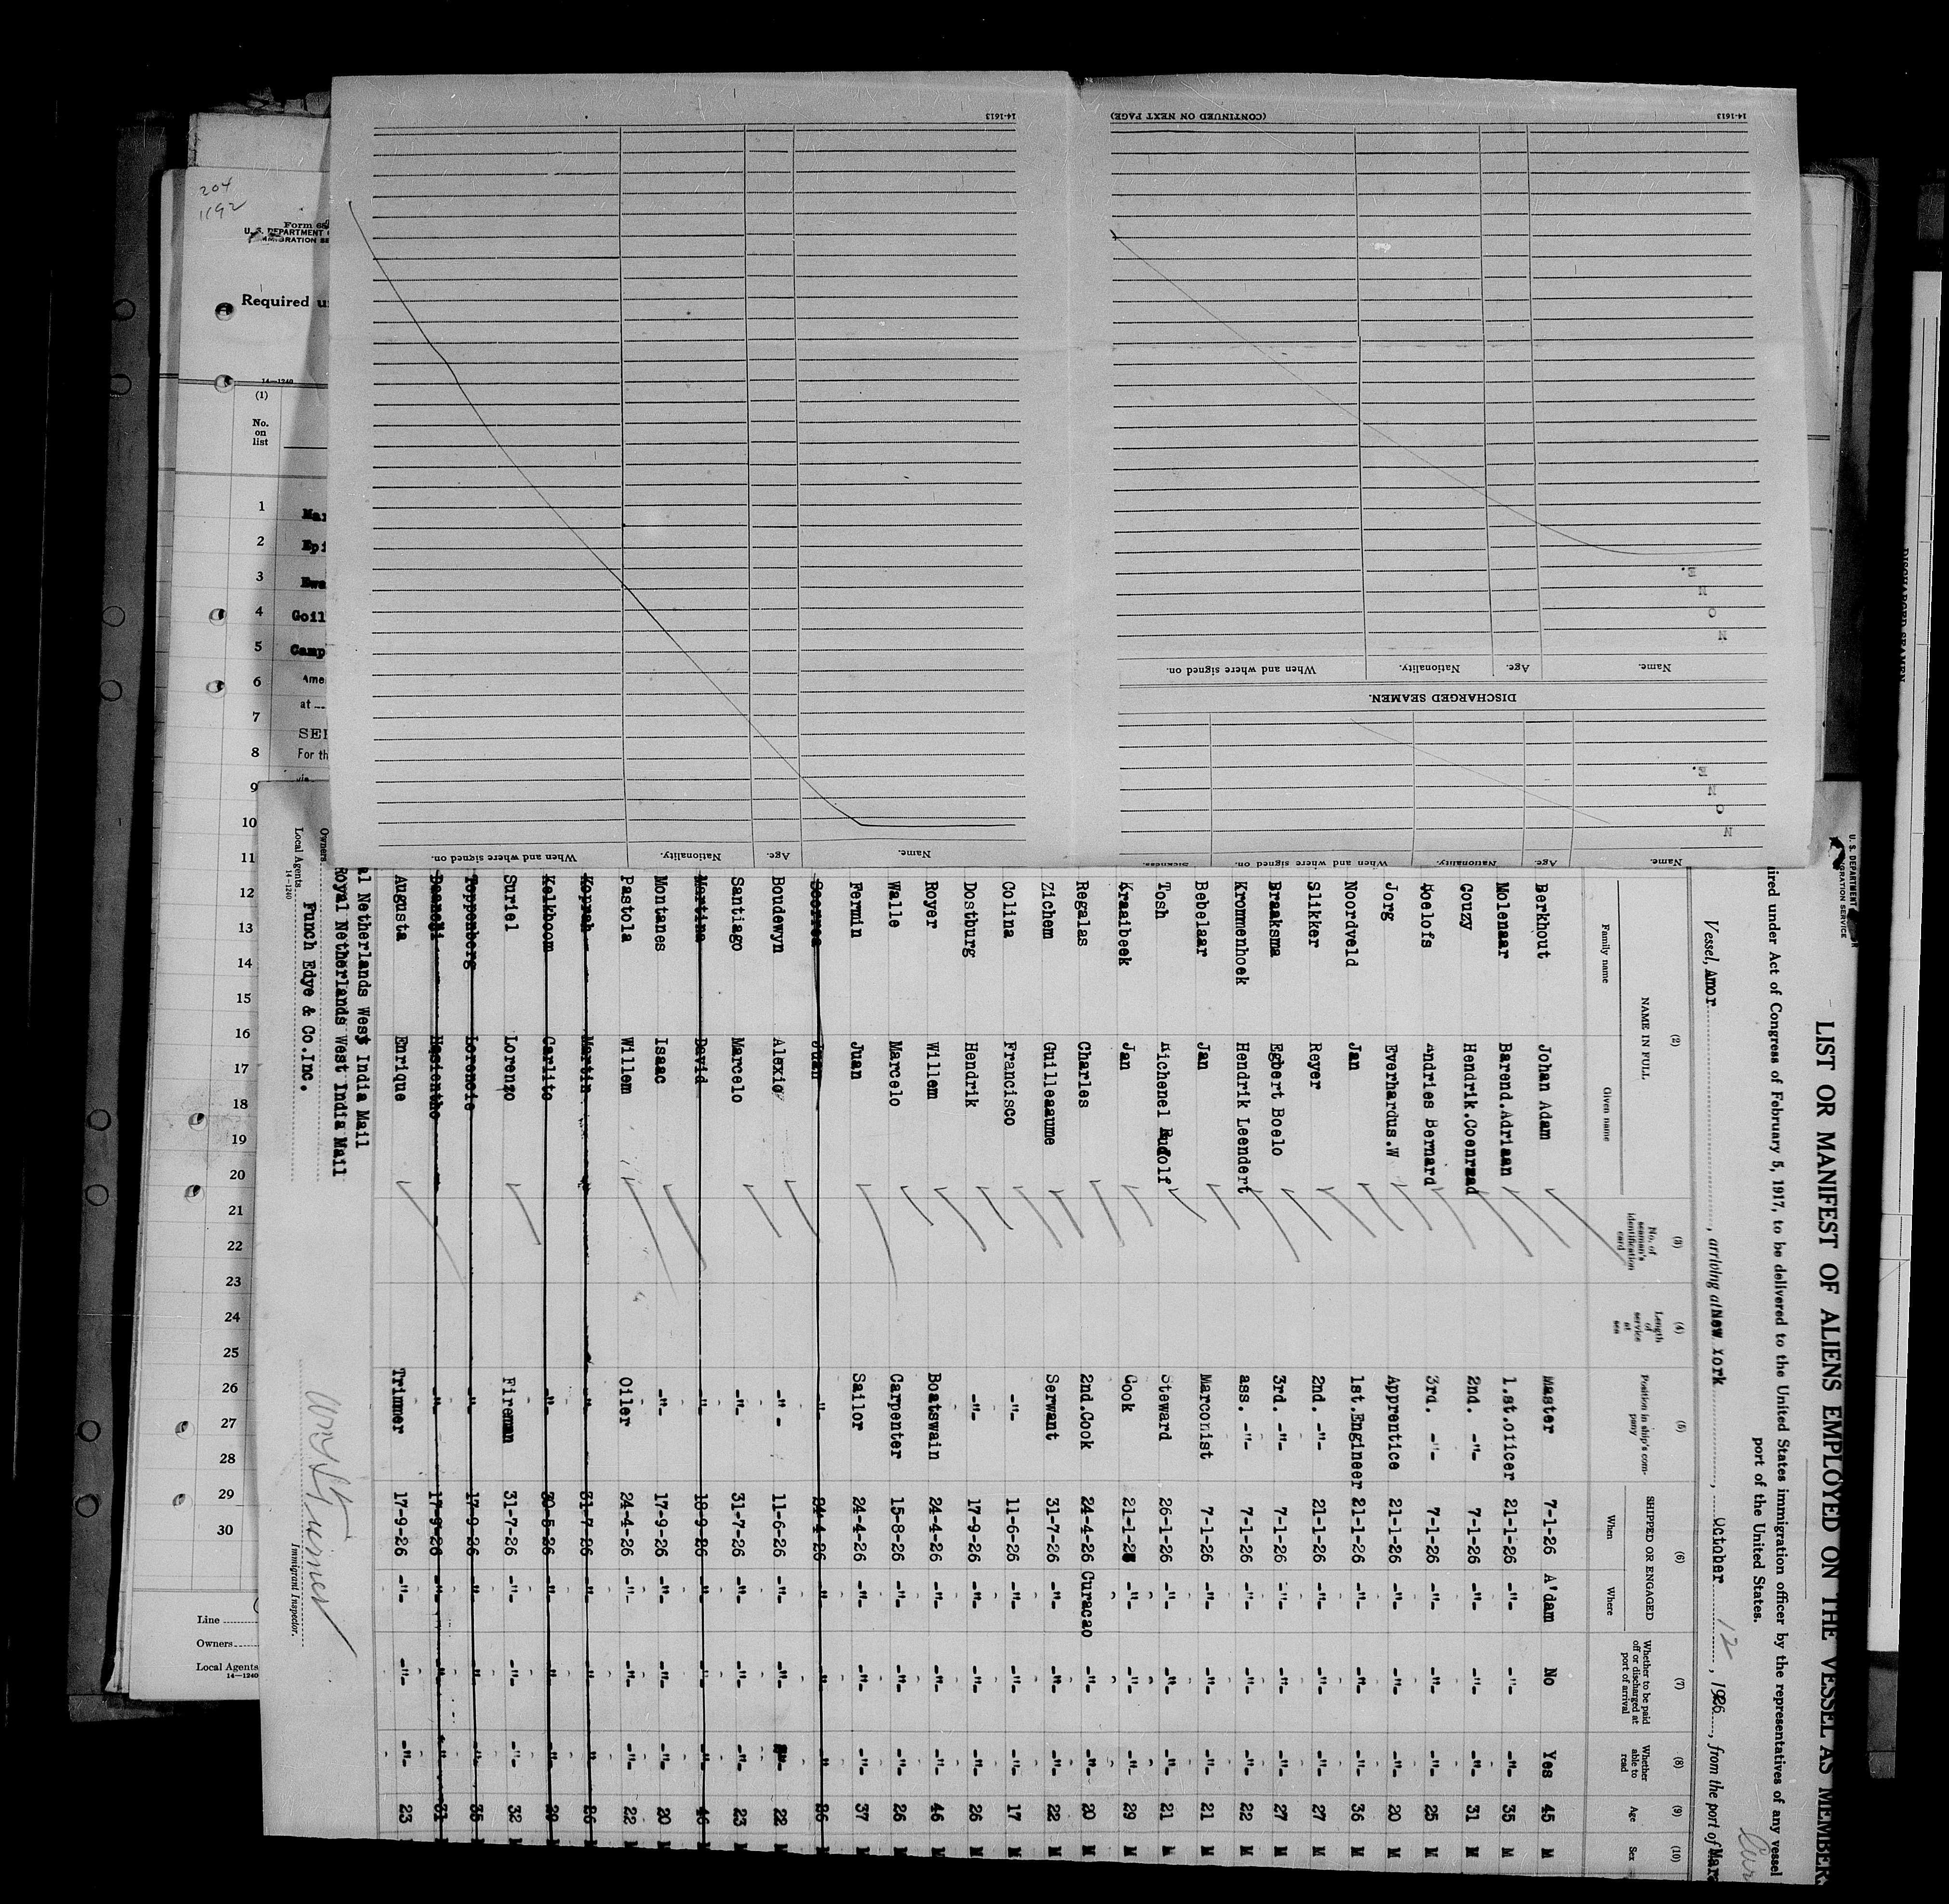 LIST OR MANIFEST OF ALIENS EMPLOYED ON THE VESSEL AS MEMBER
U. S. DEPARTMENT
ired under Act of Congress of February 5, 1917, to be delivered to the United States immigration officer by the representatives of any vessel
port of the United States.
Vessel, Amor, arriving at New York, October 12, 1926, from the port of
(2) (3) (4) (5) (6) (7) (8) (9) (10)
NAME IN FULL
Family name Given name
No. of seaman's identification card
Length of service at sea
Position in ship's company
SHIPPED OR ENGAGED
When Where
Whether to be paid off or discharged at port of arrival
Whether able to read
Age
Sex
Berkhout Johan Adam Master 7-1-26 A'dam No Yes 45 M
Molenaar Barend.Adriaan 1.st.officer 21-1-26 -"- -"- -"- 35 M
Gouzy Hendrik.Coenraad 2nd. -"- 7-1-26 -"- -"- -"- 31 M
Roelofs Andries Bernard 3rd. -"- 7-1-26 -"- -"- -"- 25 M
Jorg Everhardus.W Apprentice 21-1-26 -"- -"- -"- 20 M
Noordveld Jan 1st.Engineer 21-1-26 -"- -"- -"- 36 M
Slikker Reyer 2nd. -"- 21-1-26 -"- -"- -"- 27 M
Braaksma Egbert Boelo 3rd. -"- 7-1-26 -"- -"- -"- 27 M
Krommenhoek Hendrik Leendert ass. -"- 7-1-26 -"- -"- -"- 22 M
Bebelaar Jan Marconist 7-1-26 -"- -"- -"- 21 M
Tosh Richenel Rudolf Steward 26-1-26 -"- -"- -"- 21 M
Kraaibeek Jan Cook 21-1-26 -"- -"- -"- 29 M
Regalas Charles 2nd.Cook 24-4-26 Curacao -"- -"- 20 M
Zichem Guilleaaume Serwant 31-7-26 -"- -"- -"- 22 M
Colina Francisco -"- 11-6-26 -"- -"- -"- 17 M
Oostburg Hendrik -"- 17-9-26 -"- -"- -"- 26 M
Royer Willem Boatswain 24-4-26 -"- -"- -"- 46 M
Walle Marcelo Carpenter 15-8-26 -"- -"- -"- 26 M
Fermin Juan Sailor 24-4-26 -"- -"- -"- 37 M
Juan -"- 24-4-26 -"- -"- -"- 26 M
Boudewyn Alexio -"- 11-6-26 -"- -"- -"- 22 M
Santiago Marcelo -"- 31-7-26 -"- -"- -"- 23 M
Martina David -"- 18-9-26 -"- -"- -"- 46 M
Montanes Isaac -"- 17-9-26 -"- -"- -"- 20 M
Pastola Willem Oiler 24-4-26 -"- -"- -"- 22 M
Koprah Martin -"- 31-7-26 -"- -"- -"- 26 M
Kelkboom Carlito -"- 30-5-26 -"- -"- -"- 29 M
Suriel Lorenzo Fireman 31-7-26 -"- -"- -"- 32 M
Toppenberg Lorencie -"- 17-9-26 -"- -"- -"- 35 M
-"- 17-9-26 -"- -"- -"- 31
Augusta Enrique Trimmer 17-9-26 -"- -"- -"- 23
al Netherlands West India Mail
Owners Royal Netherlands West India Mail
Local Agents Funch Edye & Co.Inc.
14-1240
Immigrant Inspector.
14-1613
(CONTINUED ON NEXT PAGE)
14-1613
Name. Age. Nationality. When and where signed on. Sickness.
N O N E.
DISCHARGED SEAMEN.
Name. Age. Nationality. When and where signed on.
N O N E.
Name. Age. Nationality. When and where signed on.
204
1192
U. S. DEPARTMENT
Required
14-1240
(1)
No. on list
1
2 Epi
3 Ewa
4 Goil
5 Camp
6 Ame
at
7
8 For th
9
10
11
12
13
14
15
16
17
18
19
20
21
22
23
24
25
26
27
28
29
30
Line
Owners
Local Agents
14-1240
DISCHARGED SEAMEN